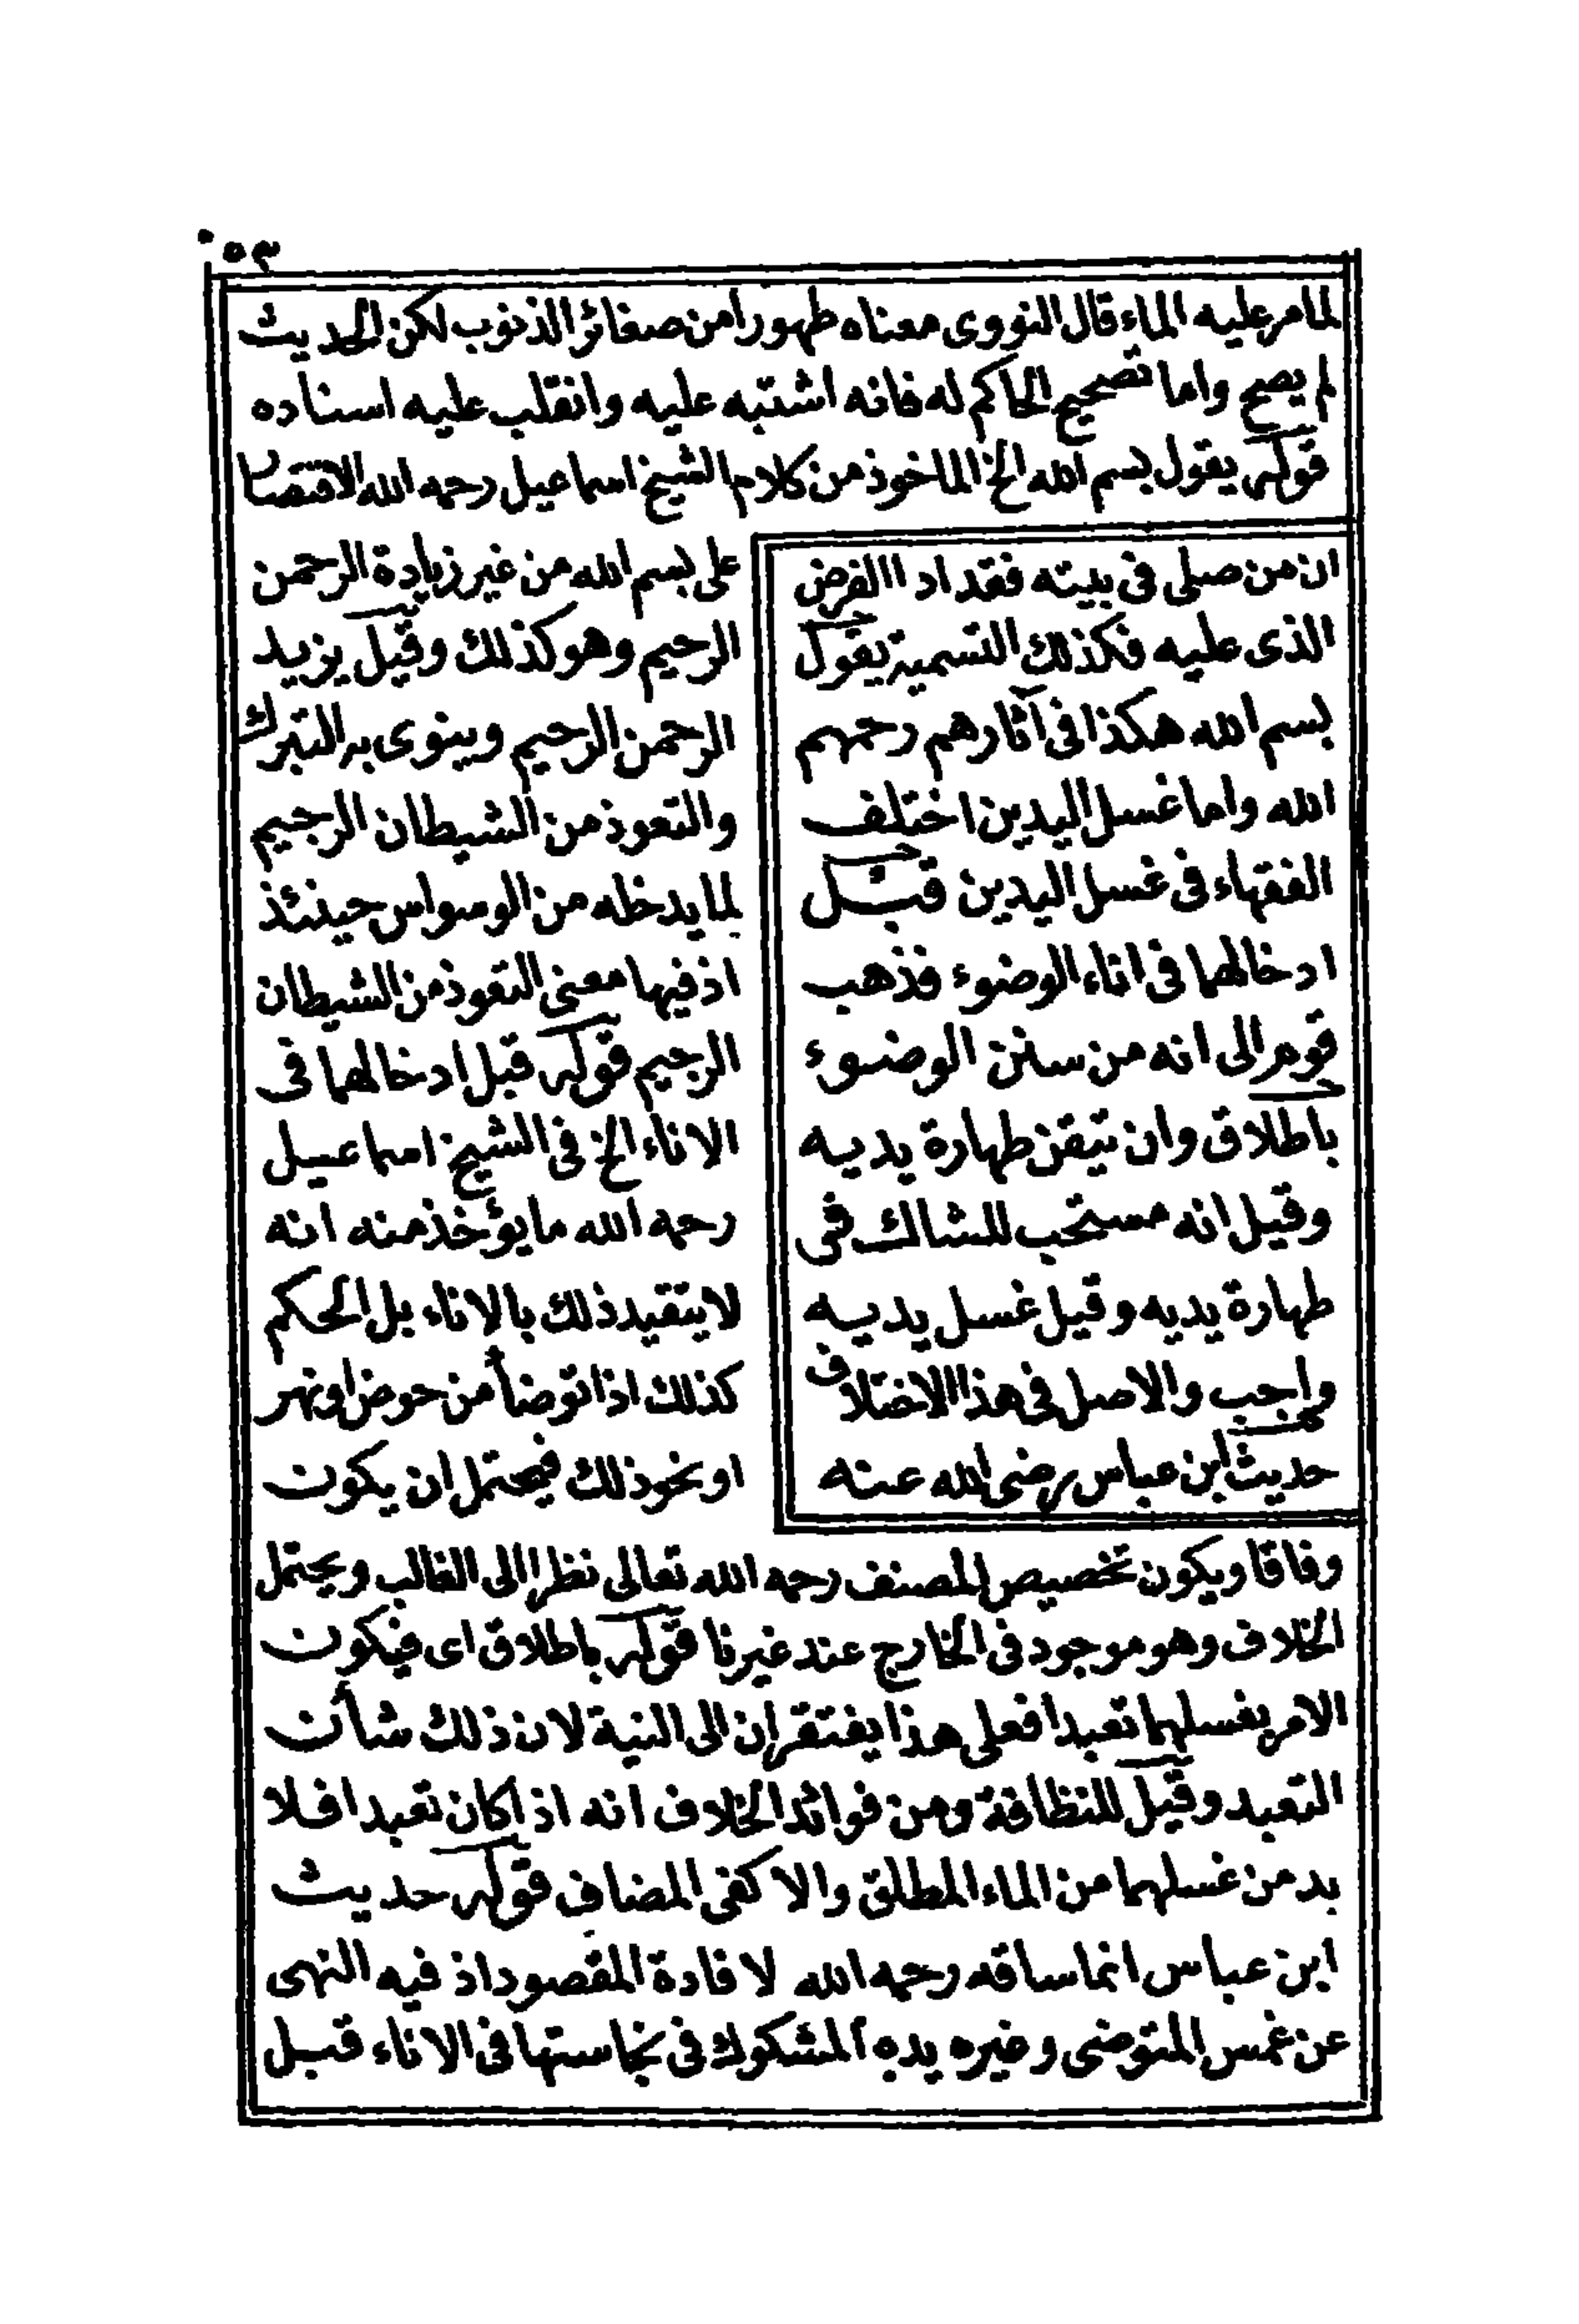 ٠٥٣
لما مر عليه الماء قال النووى معناه طهورا من صغائر الذنوب لكن الحديث
لم يصح واما تصحيح الحاكم له فانه اشتبه عليه وانقلب عليه اسناده
قوله يقول بسم الله الخ الماخوذ من كلام الشيخ اسماعيل رحمه الله الاقتصار
ان من صلى فى بيته فقد ادا الفرض
الذى عليه فكذلك التسمية يقول
بسم الله هكذا فى آثارهم رحمهم
الله واما غسل اليدين اختلف
الفقهاء فى غسل اليدين قبل
ادخالهما فى اناء الوضوء فذهب
قوم الى انه من سنن الوضوء
باطلاق وان تيقن طهارة يديه
وقيل انه مستحب للشاك فى
طهارة يديه وقيل غسل يديه
واجب والاصل فى هذا الاختلاف
حديث ابن عباس رضى الله عنه
على بسم الله من غير زيادة الرحمن
الرحيم وهو كذلك وقيل يزيد
الرحمن الرحيم وينوى به التبرك
والتعوذ من الشيطان الرجيم
لما يدخله من الوسواس حينئذ
اذ فيها معنى التعوذ من الشيطان
الرجيم قوله قبل ادخالهما فى
الاناء الخ فى الشيخ اسماعيل
رحمه الله ما يؤخذ منه انه
لا يتقيد ذلك بالاناء بل الحكم
كذلك اذا توضأ من حوض او نهر
او نحو ذلك فيحتمل ان يكون
وفاقا ويكون تخصيص المصنف رحمه الله تعالى نظرا الى الغالب ويحتمل
الخلاف وهو موجود فى الخارج عند غيرنا قوله باطلاق اى فيكون
الامر بغسلهما تعبدا فعلى هذا يفتقران الى النية لان ذلك شأن
التعبد وقيل للنظافة ومن فوائد الخلاف انه اذا كان تعبدا فلا
بد من غسلهما من الماء المطلق والا كفى المضاف قوله حديث
ابن عباس انما ساقه رحمه الله لافادة المقصود اذ فيه النهى
عن غمس المتوضى وغيره يده المشكوك فى نجاستها فى الاناء قبل